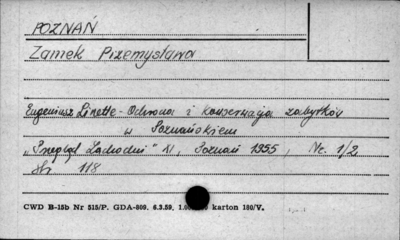 POZNAŃ
Zamek Przemysława
Eugeniusz Linette - Ochrona i konserwacja zabytków
w Poznańskiem
"Przegląd Zachodni" XI, Poznań 1955, Nr. 1/2
str 118
CWD B-15b Nr 515/P. GDA-809. 6.3.59. karton 180/V.